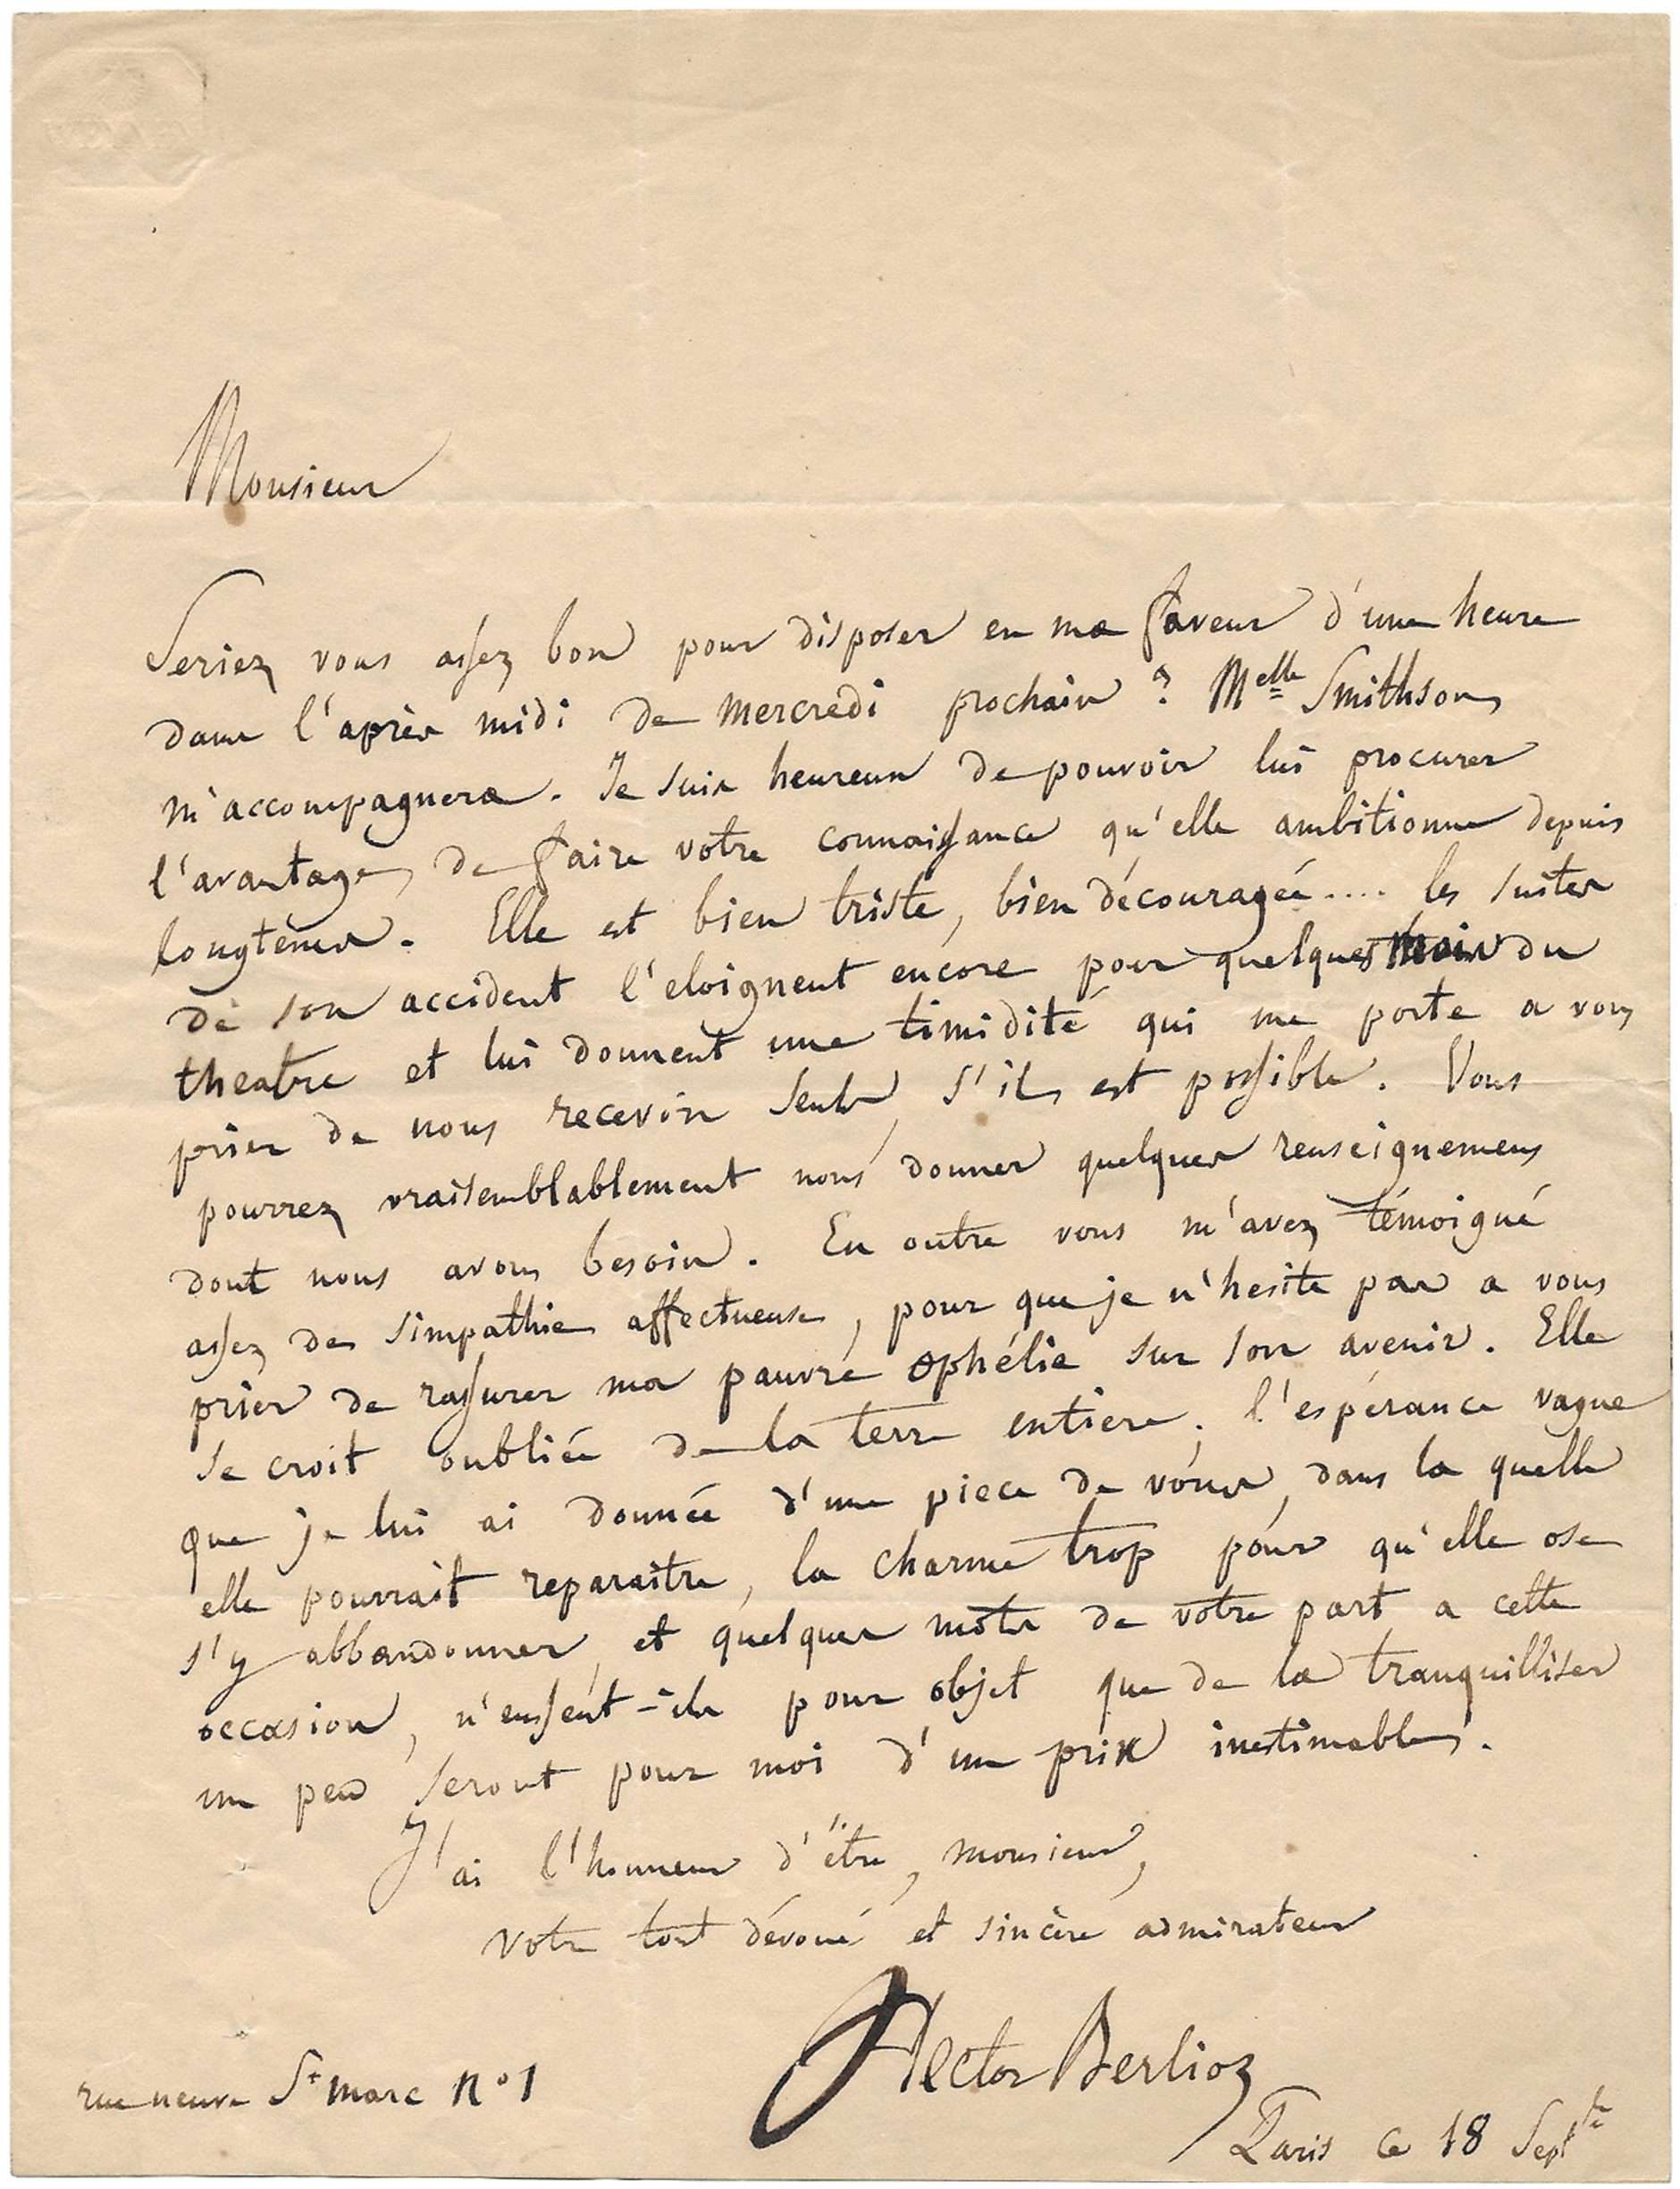 Monsieur
Seriez vous assez bon pour disposer en ma faveur d'une heure
dans l'après midi de mercredi prochain ? Melle Smithson
m'accompagnera. Je suis heureux de pouvoir lui procurer
l'avantage de faire votre connaissance qu'elle ambitionne depuis
longtems. Elle est bien triste, bien découragée.... les suites
de son accident l'eloignent encore pour quelques mois du
theatre et lui donnent une timidité qui me porte a vous
prier de nous recevoir seuls, s'il est possible. Vous
pourrez vraisemblablement nous donner quelques renseignemens
dont nous avons besoin. En outre vous m'avez témoigné
assez de simpathie affectueuse, pour que je n'hesite pas a vous
prier de rassurer ma pauvre ophélie sur son avenir. Elle
se croit oubliée de la terre entiere; l'espérance vague
que je lui ai donnée d'une piece de vous, dans la quelle
elle pourrait reparaitre, la charme trop pour qu'elle ose
s'y abbandonner, et quelques mots de votre part a cette
occasion, n'eussent-ils pour objet que de la tranquilliser
un peu seront pour moi d'un prix inestimable.
J'ai l'honneur d'être, monsieur,
votre tout dévoué et sincère admirateur
Hector Berlioz
rue neuve St marc No 1
Paris ce 18 Septbre